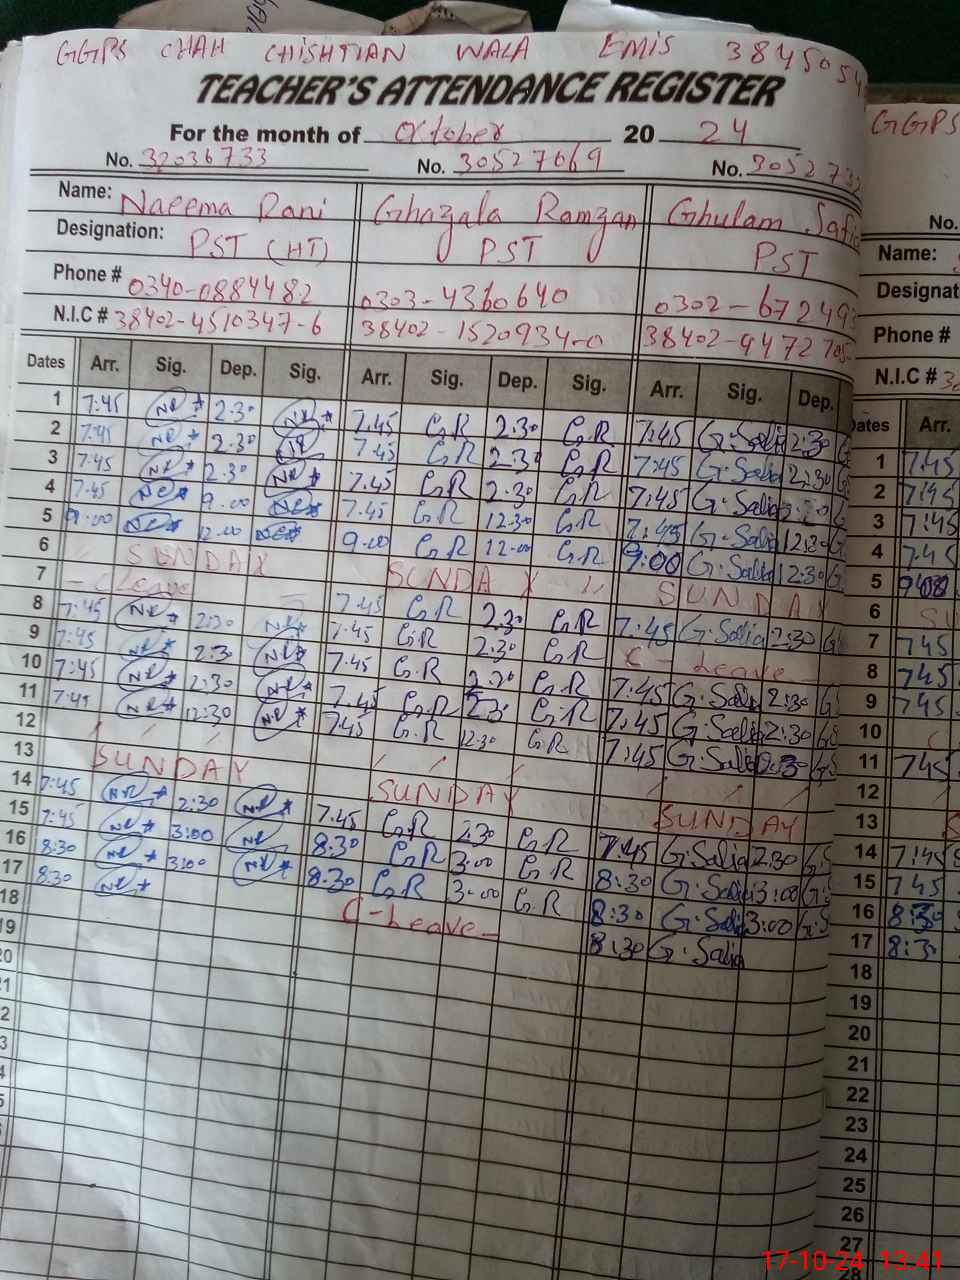 GGPS CHAH CHISHTIAN WALA EMIS 3845054
TEACHER'S ATTENDANCE REGISTER
GGPS
For the month of October 20 24
No. 32036733 No. 30527069 No. 3052732
No.
Name: Naeema Rani Ghazala Ramzan Ghulam Safi
Name:
Designation: PST (HT) PST PST
Designat
Phone # 0340-0884482 0303-4360640 0302-672493
Phone #
N.I.C # 38402-4510347-6 38402-1520934-0 38402-9472705-
N.I.C # 3
Dates Arr. Sig. Dep. Sig. Arr. Sig. Dep. Sig. Arr. Sig. Dep.
Dates Arr.
1 7:45 NR 2:30 NR 7:45 G.R 2:30 G.R 7:45 G.Safia 2:30
2 7:45 NR 2:30 NR 7:45 G.R 2:30 G.R 7:45 G.Safia 2:30
3 7:45 NR 2:30 NR 7:45 G.R 2:30 G.R 7:45 G.Safia
4 7:45 NR 9:00 NR 7:45 G.R 12:30 G.R 7:45 G.Safia 12:30
5 9:00 NR 12:00 NR 9:00 G.R 12:00 G.R 9:00 G.Safia 12:30
6 SUNDAY SUNDAY SUNDAY
7 - C Leave - 7:45 G.R 2:30 G.R 7:45 G.Safia 2:30
8 7:45 NR 2:30 NR 7:45 G.R 2:30 G.R C - Leave -
9 7:45 NR 2:30 NR 7:45 G.R 2:30 G.R 7:45 G.Safia 2:30
10 7:45 NR 2:30 NR 7:45 G.R 2:30 G.R 7:45 G.Safia 2:30
11 7:45 NR 12:30 NR 7:45 G.R 12:30 G.R 7:45 G.Safia
12
13 SUNDAY SUNDAY SUNDAY
14 7:45 NR 2:30 NR 7:45 G.R 2:30 G.R 7:45 G.Safia 2:30 G.S
15 7:45 NR 3:00 NR 8:30 G.R 3:00 G.R 8:30 G.Safia 3:00 G.S
16 8:30 NR 3:00 NR 8:30 G.R 3:00 G.R 8:30 G.Safia 3:00 G.S
17 8:30 NR C-Leave- 8:30 G.Safia
18
19
20
1 7:45
2 7:45
3 7:45
4 7:45
5
6
7 7:45
8 7:45
9 7:45
10
11 7:45
12
13
14 7:45
15 7:45
16 8:30
17 8:3
18
19
20
21
22
23
24
25
26
27
28
17-10-24 13:41